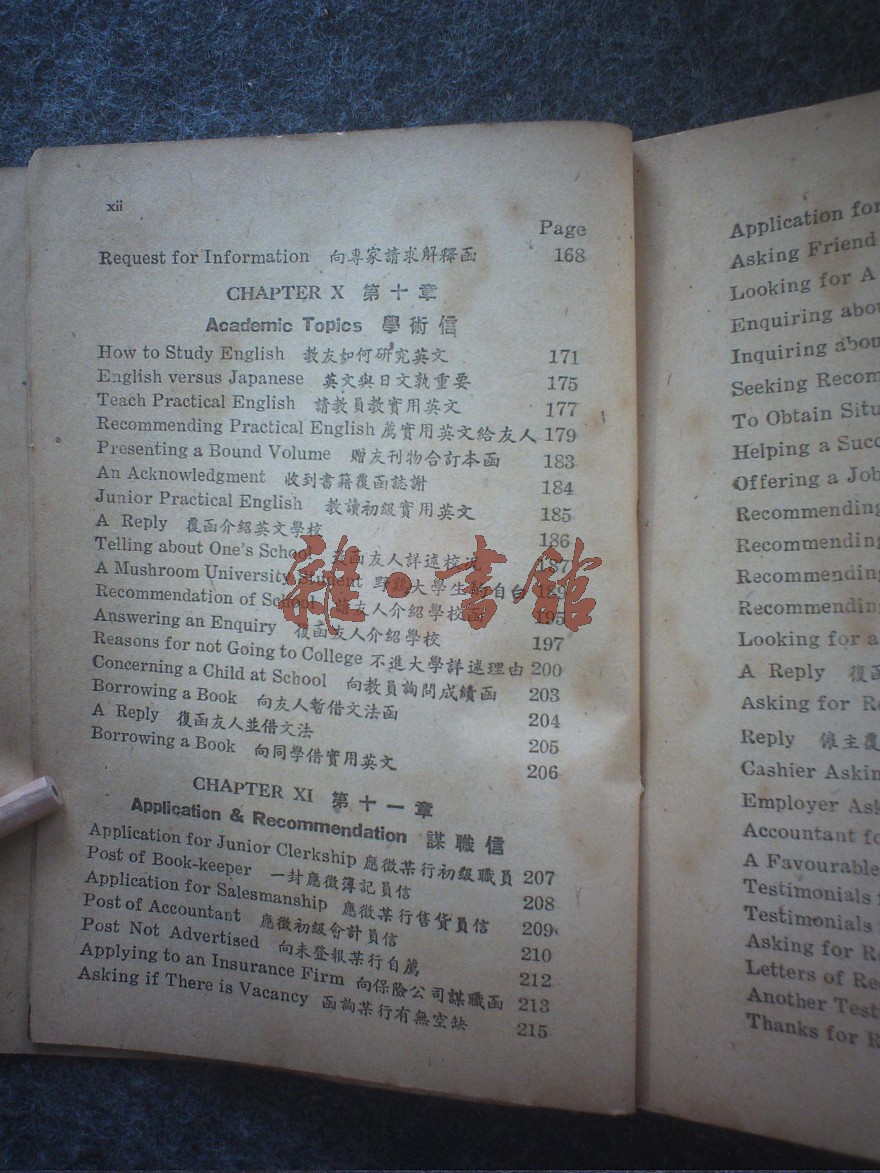 xii
Page
Request for Information 向專家請求解釋函 168
CHAPTER X 第十章
Academic Topics 學術信
How to Study English 教友如何研究英文 171
English versus Japanese 英文與日文孰重要 175
Teach Practical English 請教員教實用英文 177
Recommending Practical English 薦實用英文給友人 179
Presenting a Bound Volume 贈友刊物合訂本函 183
An Acknowledgment 收到書籍覆函誌謝 184
Junior Practical English 教讀初級實用英文 185
A Reply 覆函介紹英文學校 186
Telling about One's School 函友人詳述校況 187
A Mushroom University Student 野鷄大學生的自白 189
Recommendation of School 請友人介紹學校函 195
Answering an Enquiry 復函友人介紹學校 197
Reasons for not Going to College 不進大學詳述理由 200
Concerning a Child at School 向教員詢問成績函 203
Borrowing a Book 向友人暫借文法函 204
A Reply 復函友人並借文法 205
Borrowing a Book 向同學借實用英文 206
CHAPTER XI 第十一章
Application & Recommendation 謀職信
Application for Junior Clerkship 應徵某行初級職員 207
Post of Book-keeper 一封應徵簿記員信 208
Application for Salesmanship 應徵某行售貨員信 209
Post of Accountant 應徵初級會計員信 210
Post Not Advertised 向未登報某行自薦 212
Applying to an Insurance Firm 向保險公司謀職函 213
Asking if There is Vacancy 函詢某行有無空缺 215
雜·書館
Application for
Asking Friend
Looking for A
Enquiring abou
Inquiring abou
Seeking Recom
To Obtain Situ
Helping a Succ
Offering a Job
Recommending
Recommending
Recommending
Recommending
Looking for a
A Reply 復函
Asking for Re
Reply 僱主覆
Cashier Askin
Employer Ask
Accountant fo
A Favourable
Testimonials f
Testimonials
Asking for Re
Letters of Rec
Another Testi
Thanks for R